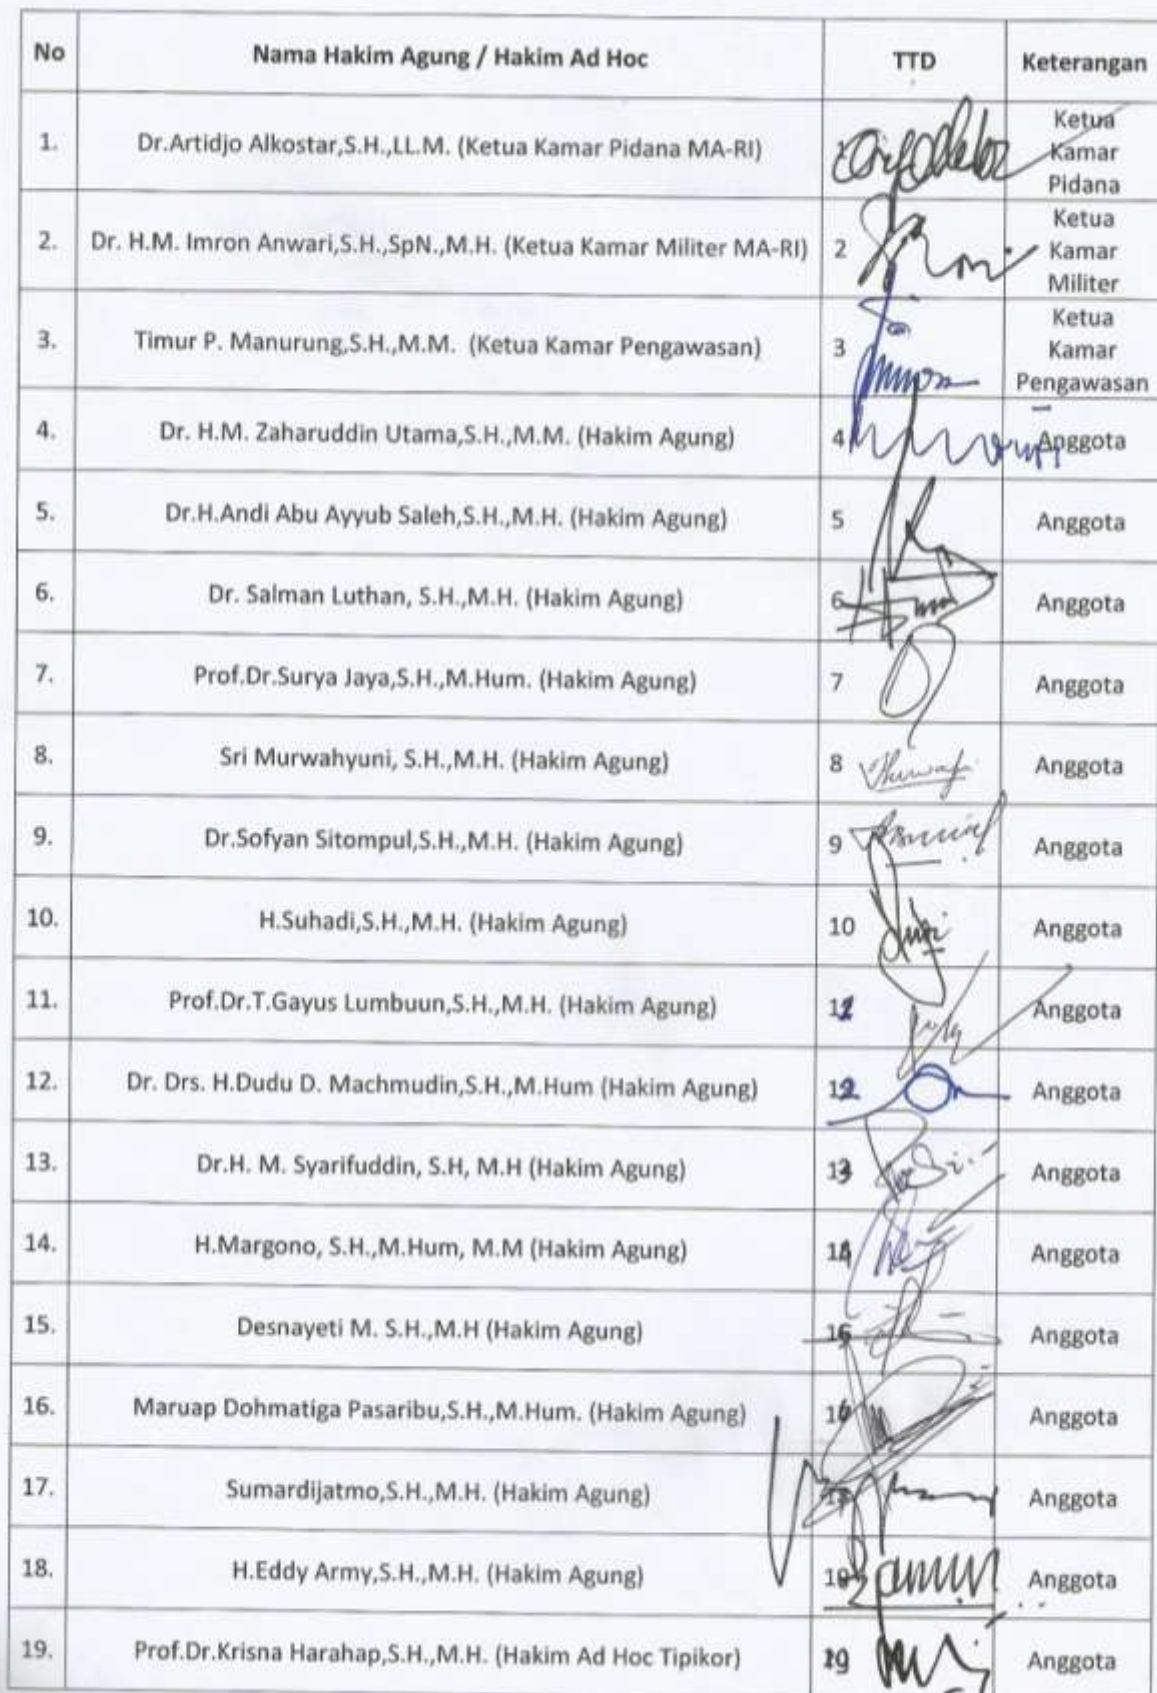 No Nama Hakim Agung / Hakim Ad Hoc TTD Keterangan
1. Dr.Artidjo Alkostar,S.H.,LL.M. (Ketua Kamar Pidana MA-RI) 1 Ketua
Kamar
Pidana
2. Dr. H.M. Imron Anwari,S.H.,SpN.,M.H. (Ketua Kamar Militer MA-RI) 2 Ketua
Kamar
Militer
3. Timur P. Manurung,S.H.,M.M. (Ketua Kamar Pengawasan) 3 Ketua
Kamar
Pengawasan
4. Dr. H.M. Zaharuddin Utama,S.H.,M.M. (Hakim Agung) 4 Anggota
5. Dr.H.Andi Abu Ayyub Saleh,S.H.,M.H. (Hakim Agung) 5 Anggota
6. Dr. Salman Luthan, S.H.,M.H. (Hakim Agung) 6 Anggota
7. Prof.Dr.Surya Jaya,S.H.,M.Hum. (Hakim Agung) 7 Anggota
8. Sri Murwahyuni, S.H.,M.H. (Hakim Agung) 8 Anggota
9. Dr.Sofyan Sitompul,S.H.,M.H. (Hakim Agung) 9 Anggota
10. H.Suhadi,S.H.,M.H. (Hakim Agung) 10 Anggota
11. Prof.Dr.T.Gayus Lumbuun,S.H.,M.H. (Hakim Agung) 11 Anggota
12. Dr. Drs. H.Dudu D. Machmudin,S.H.,M.Hum (Hakim Agung) 12 Anggota
13. Dr.H. M. Syarifuddin, S.H, M.H (Hakim Agung) 13 Anggota
14. H.Margono, S.H.,M.Hum, M.M (Hakim Agung) 14 Anggota
15. Desnayeti M. S.H.,M.H (Hakim Agung) 15 Anggota
16. Maruap Dohmatiga Pasaribu,S.H.,M.Hum. (Hakim Agung) 16 Anggota
17. Sumardijatmo,S.H.,M.H. (Hakim Agung) 17 Anggota
18. H.Eddy Army,S.H.,M.H. (Hakim Agung) 18 Anggota
19. Prof.Dr.Krisna Harahap,S.H.,M.H. (Hakim Ad Hoc Tipikor) 19 Anggota